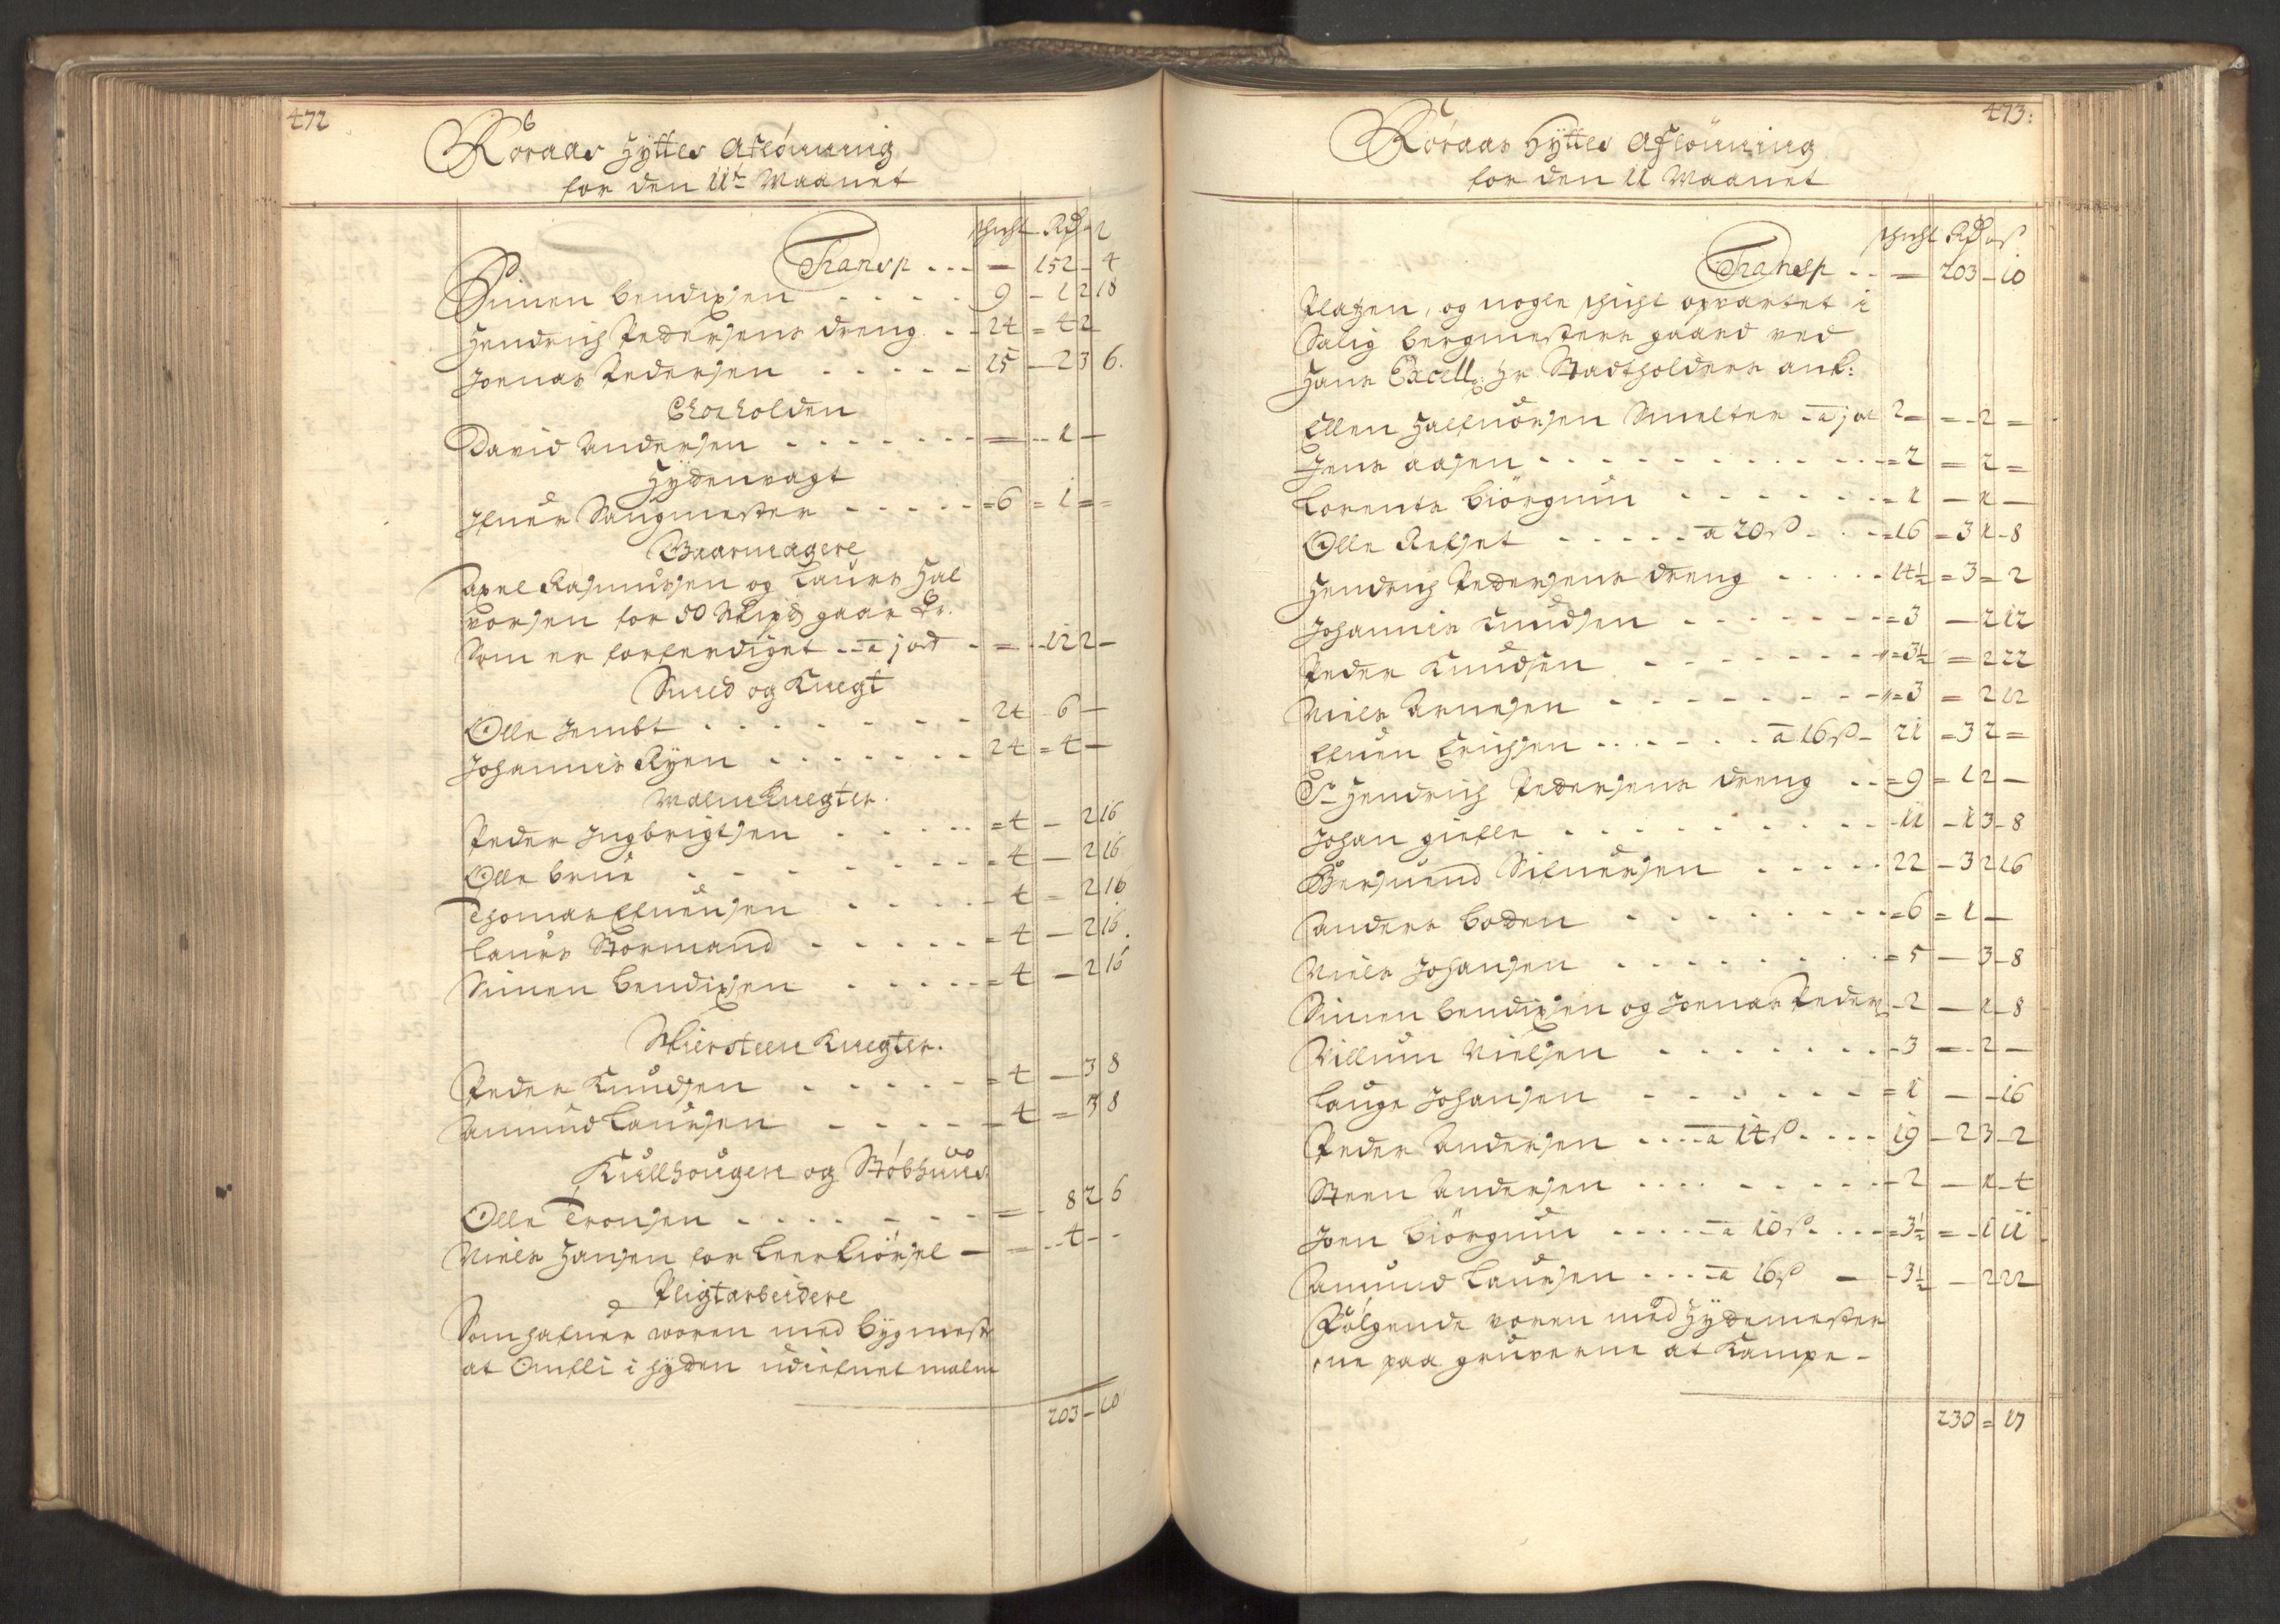 472
Röraas Hyttes Aflönning
for den 11te Maanet
schicht Rdr
Transp - - - — 152 - 4
Simen Bendixsen - - - - 9 - 1 2 18
Hendrich Pedersens dreng - - 24 = 4 2
Joenas Pedersen - - - - - 15 - 2 3 6.
David Andersen - - - - - - - = - - 1 -
Hydenvagt
Sangmester - - - - - = 6 = 1 = =
Gaarmagere
Axel Rasmussen og Laurs Hal
vorsen for 50 gaar
Som er forferdiget - - a 1 ort - = - - 12 2 -
Smed og Knegt
Olle Jembt - - - - - - - 24 - 6 -
Johannis Ryen - - - - - - - 24 = 4 -
Malm Knegter.
Peder Ingbrigtsen - - - - - = 4 - 2 16
Olle Brue - - - - - - - = 4 - 2 16
Thomas Efvensen - - - - - - 4 = 2 16
Laurs Stormand - - - - - = 4 - 2 16.
Simen Bendixsen - - - - - = 4 - 2 16
Skiersteen Knegter.
Peder Knudsen - - - - - = 4 - 3 8
Amund Laursen - - - - - - 4 = 3 8
Kullhougen og Stöbhuus
Olle Tronsen - - - - - - - = - 8 2 6
Niels Hansen for Leerkiörsel - = - - 4 - -
Pligtarbeidere
Som hafuer woren med Bygmestr
at i hyden udi malm
203 - 10
473:
Röraas Hyttes Aflönning
for den 11 Maanet
schicht Rdr ort ß
Transp - - = 203 - 10
Platzen, og nogle schicht opvartet i
Salig Bergmesters gaard ved
Hans Excell: Hr Stadtholders ank:
Ellen Halfuorsen Smelter - a 1 ort 2 = = - 2 =
Jens Aasen - - - - - - - - - - = 2 = 2 =
Lorents Biörgum - - - - - - - = 1 - 1 -
Olle Refset - - - - - a 20 ß - - - = 16 = 3 1 - 8
Hendrich Pedersens dreng - - - - - 14½ = 3 = 2
Johannis Knudsen - - - - - - - = 3 - 2 12
Peder Knudsen - - - - - - - = 3½ = 2 22
Niels Arnesen - - - - - - - - = 3 = 2 12
Efuen Erichsen - - - - - - - a 16 ß - 21 = 3 2 =
Sr Hendrich Pedersens dreng - - = 9 = 1 2 -
Johan gielle - - - - - - - - - - 11 - 1 3 - 8
Bersuend Sifuersen - - - - - 22 - 3 2 16
Anders Bolden - - - - - - - - = 6 = 1 -
Niels Johansen - - - - - - - - = 5 - 3 - 8
Simen Bendixsen og Joenas Peders - 2 - 1 - 8
Villum Nielsen - - - - - - - - 3 - - 2 -
Lauge Johansen - - - - - - = 1 - - 16
Peder Andersen - - - - a 14 ß - - - - 19 - 2 3 - 2
Steen Andersen - - - - - - - - - - 2 - 1 - 4
Joen Biörgum - - - - - a 10 ß - - - - = 3½ = - 1 11
Amund Laursen - - - - a 16 ß - - 3½ - 2 22
Fölgende voren med Hydemester
ene paa gruverne at Kampe -
230 = 17